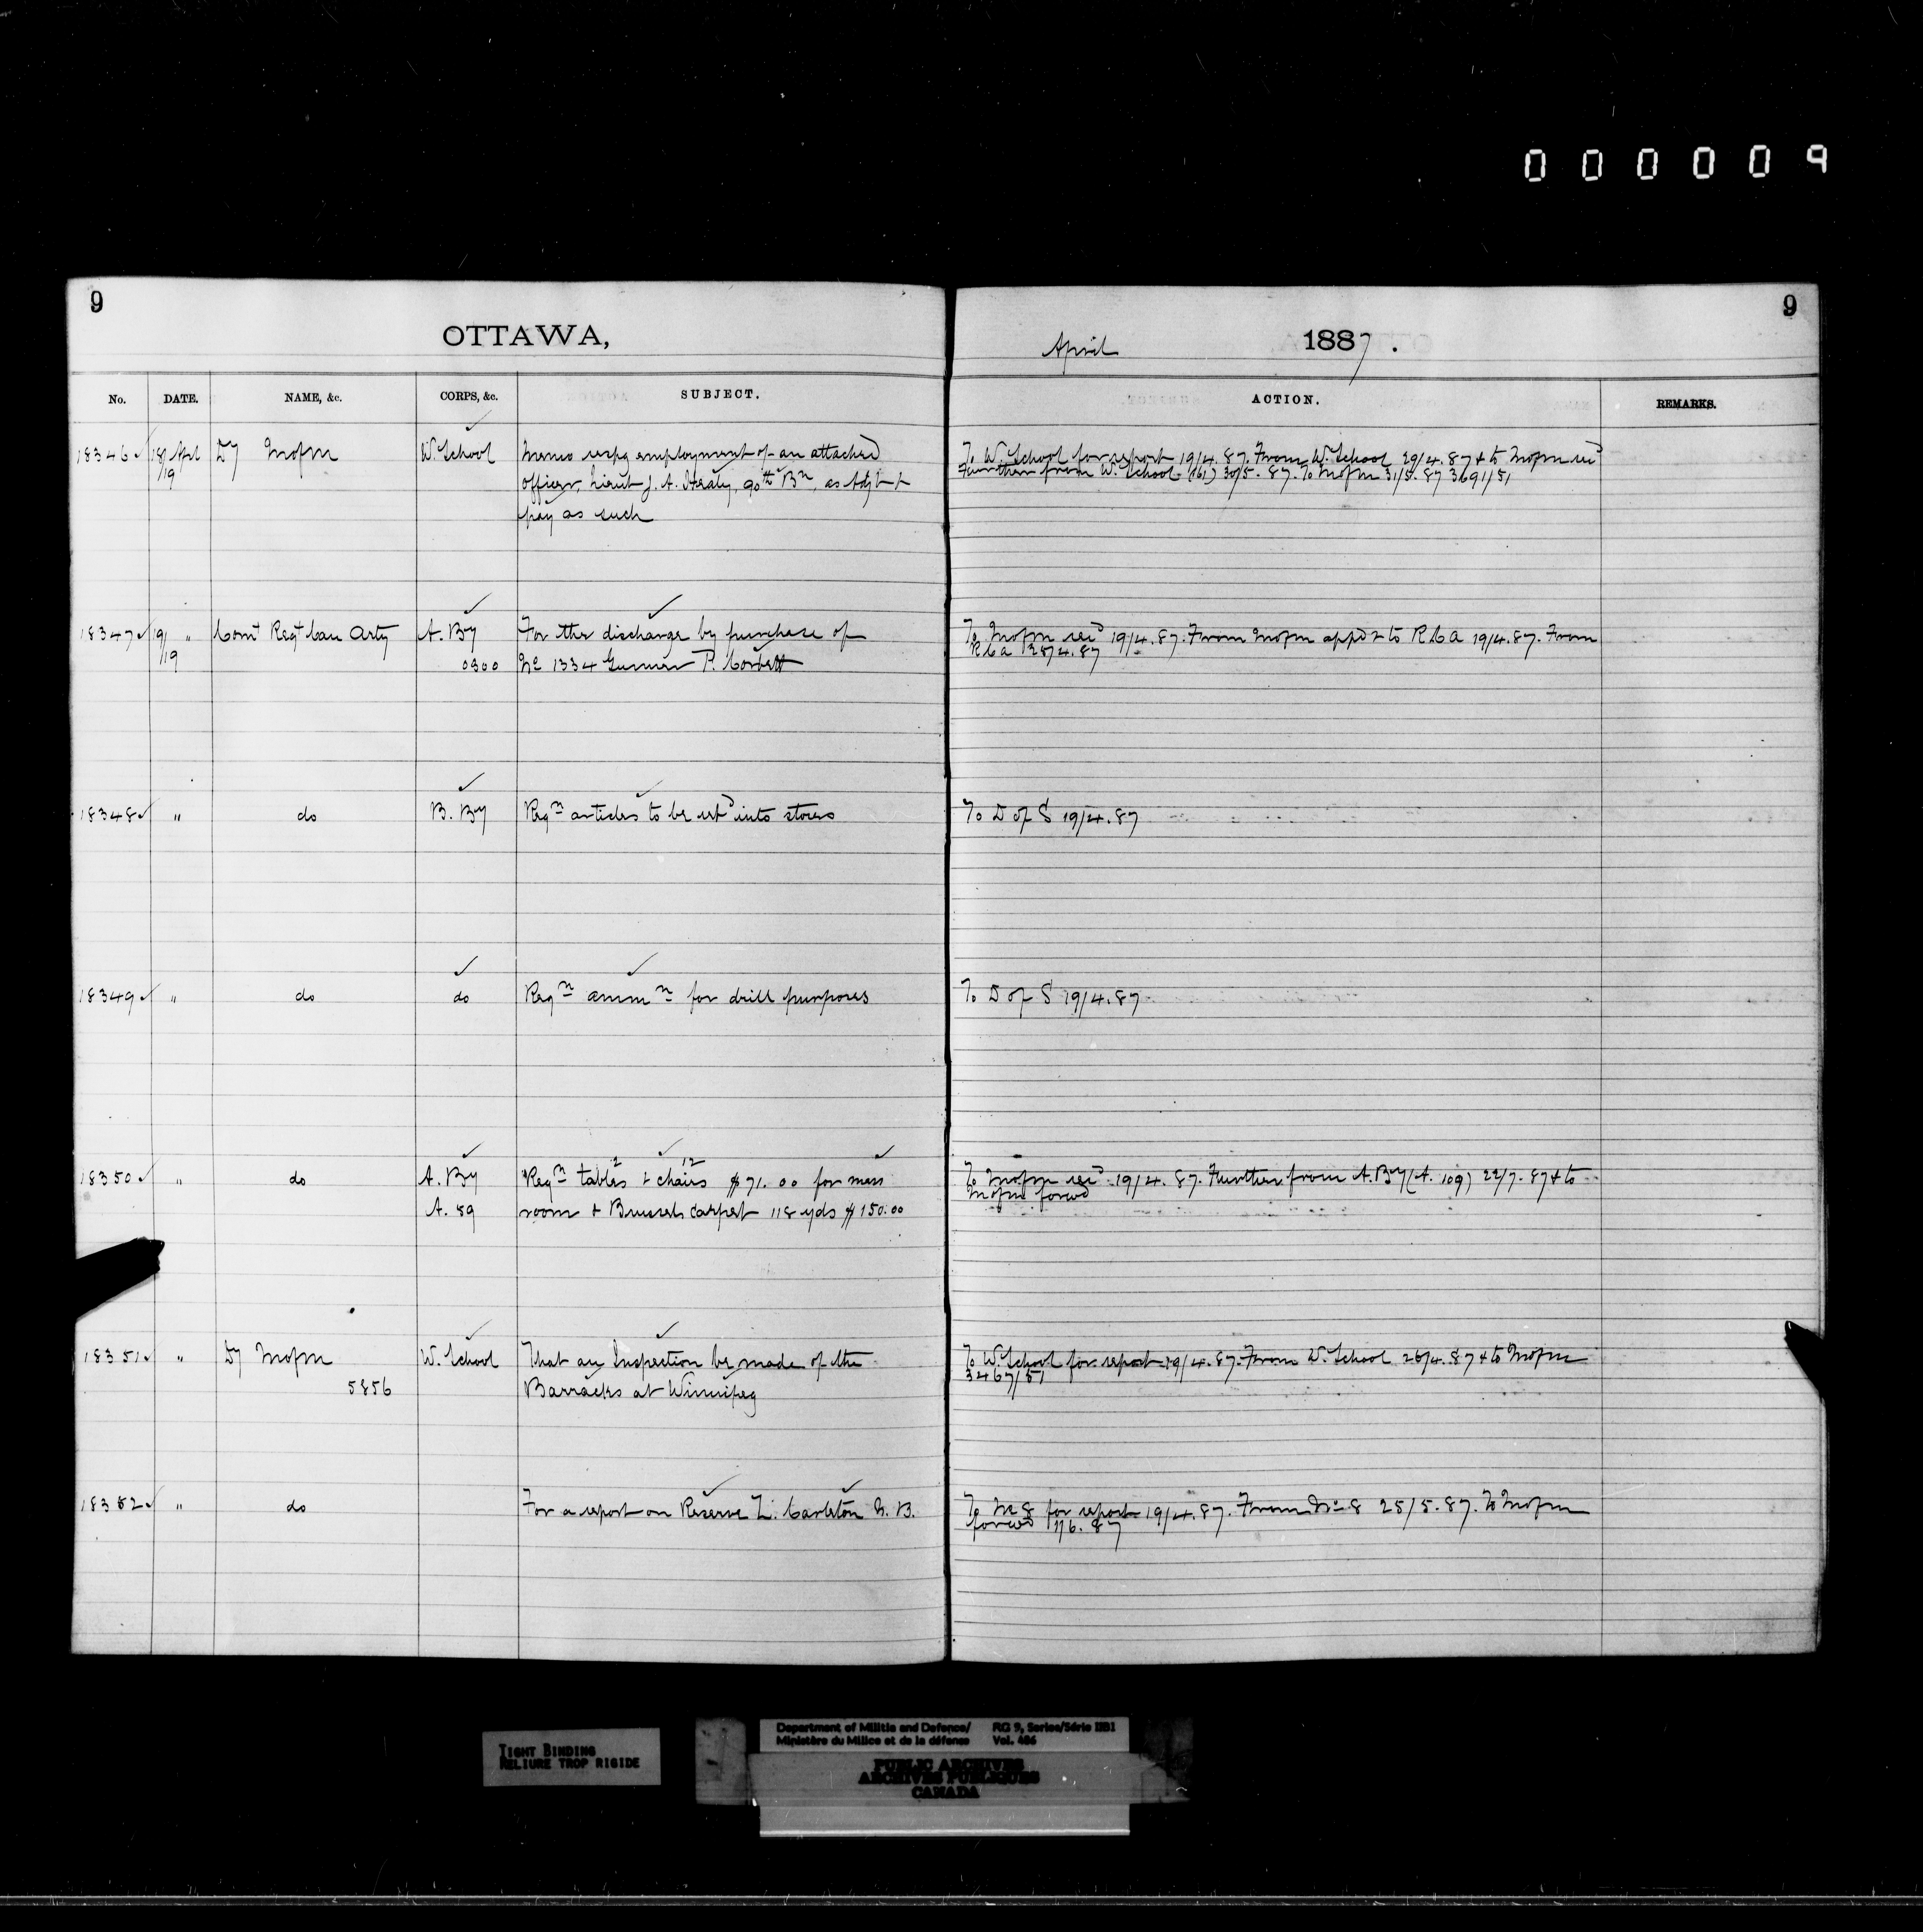 000009
9
OTTAWA,
No. DATE. NAME, &c. CORPS, &c. SUBJECT.
18346 18/ Apl Dy Mofm W. School Memo respg employment of an attached
/19 officer, Lieut J. A. Healy, 90th Bn, as Adjt +
pay as such
18347 19/ " Comt Regt Can Arty A. By For the discharge by purchase of
/19 0300 No 1334 Gunner P. Corbett
18348 " do B. By Reqn articles to be retd into stores
18349 " do do Reqn ammn for drill purposes
18350 " do A. By Reqn tables 2 + chairs 12 $71.00 for mess
A. 89 room + Brussels carpet 118 yds $150.00
18351 " Dy Mofm W. School That an Inspection be made of the
5856 Barracks at Winnipeg
18352 " do For a report on Reserve L. Carleton N. B.
9
April 1887.
ACTION. REMARKS.
To W. School for report 19/4.87. From W. School 29/4.87 + to Mofm recd
Further from W. School (161) 30/5.87. To Mofm 31/5.87 3691/51
To Mofm recd 19/4.87. From Mofm appd + to RCA 19/4.87. From
RCA 28/4.87
To D of S 19/4.87
To D of S 19/4.87
To Mofm recd 19/4.87. Further from A. By (A. 109) 22/7.87 + to
Mofm forwd
To W. School for report 19/4.87. From W. School 26/4.87 + to Mofm
3467/51
To No 8 for report 19/4.87. From No 8 25/5.87. To Mofm
forwd 1/6.87
TIGHT BINDING
RELIURE TROP RIGIDE
Department of Militia and Defence/ RG 9, Series/Série IIB1
Ministère du Milice et de la défense Vol. 486
PUBLIC ARCHIVES
ARCHIVES PUBLIQUES
CANADA